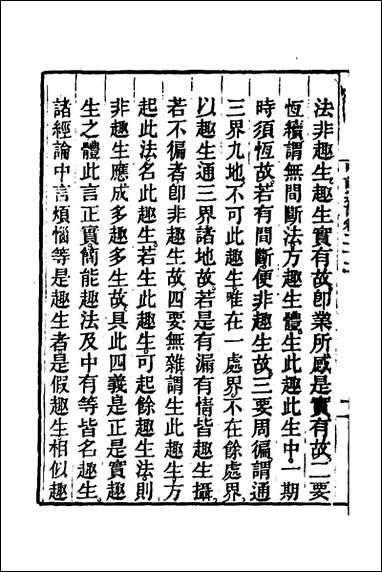 法非趣生趣生實有故卽業所感是實有故二要
恆續謂無間斷法方趣生體生此趣此生中一期
時須恆故若有間斷便非趣生故三要周徧謂通
三界九地不可此趣生唯在一處界不在餘處界
以趣生通三界諸地故若是有漏有情皆趣生攝
若不徧者卽非趣生故四要無雜謂生此趣生方
起此法名此趣生若生此趣生可起餘趣生法則
非趣生應成多趣多生故具此四義是正是實趣
生之體此言正實簡能趣法及中有等皆名趣生
諸經論中言煩惱等是趣生者是假趣生相似趣